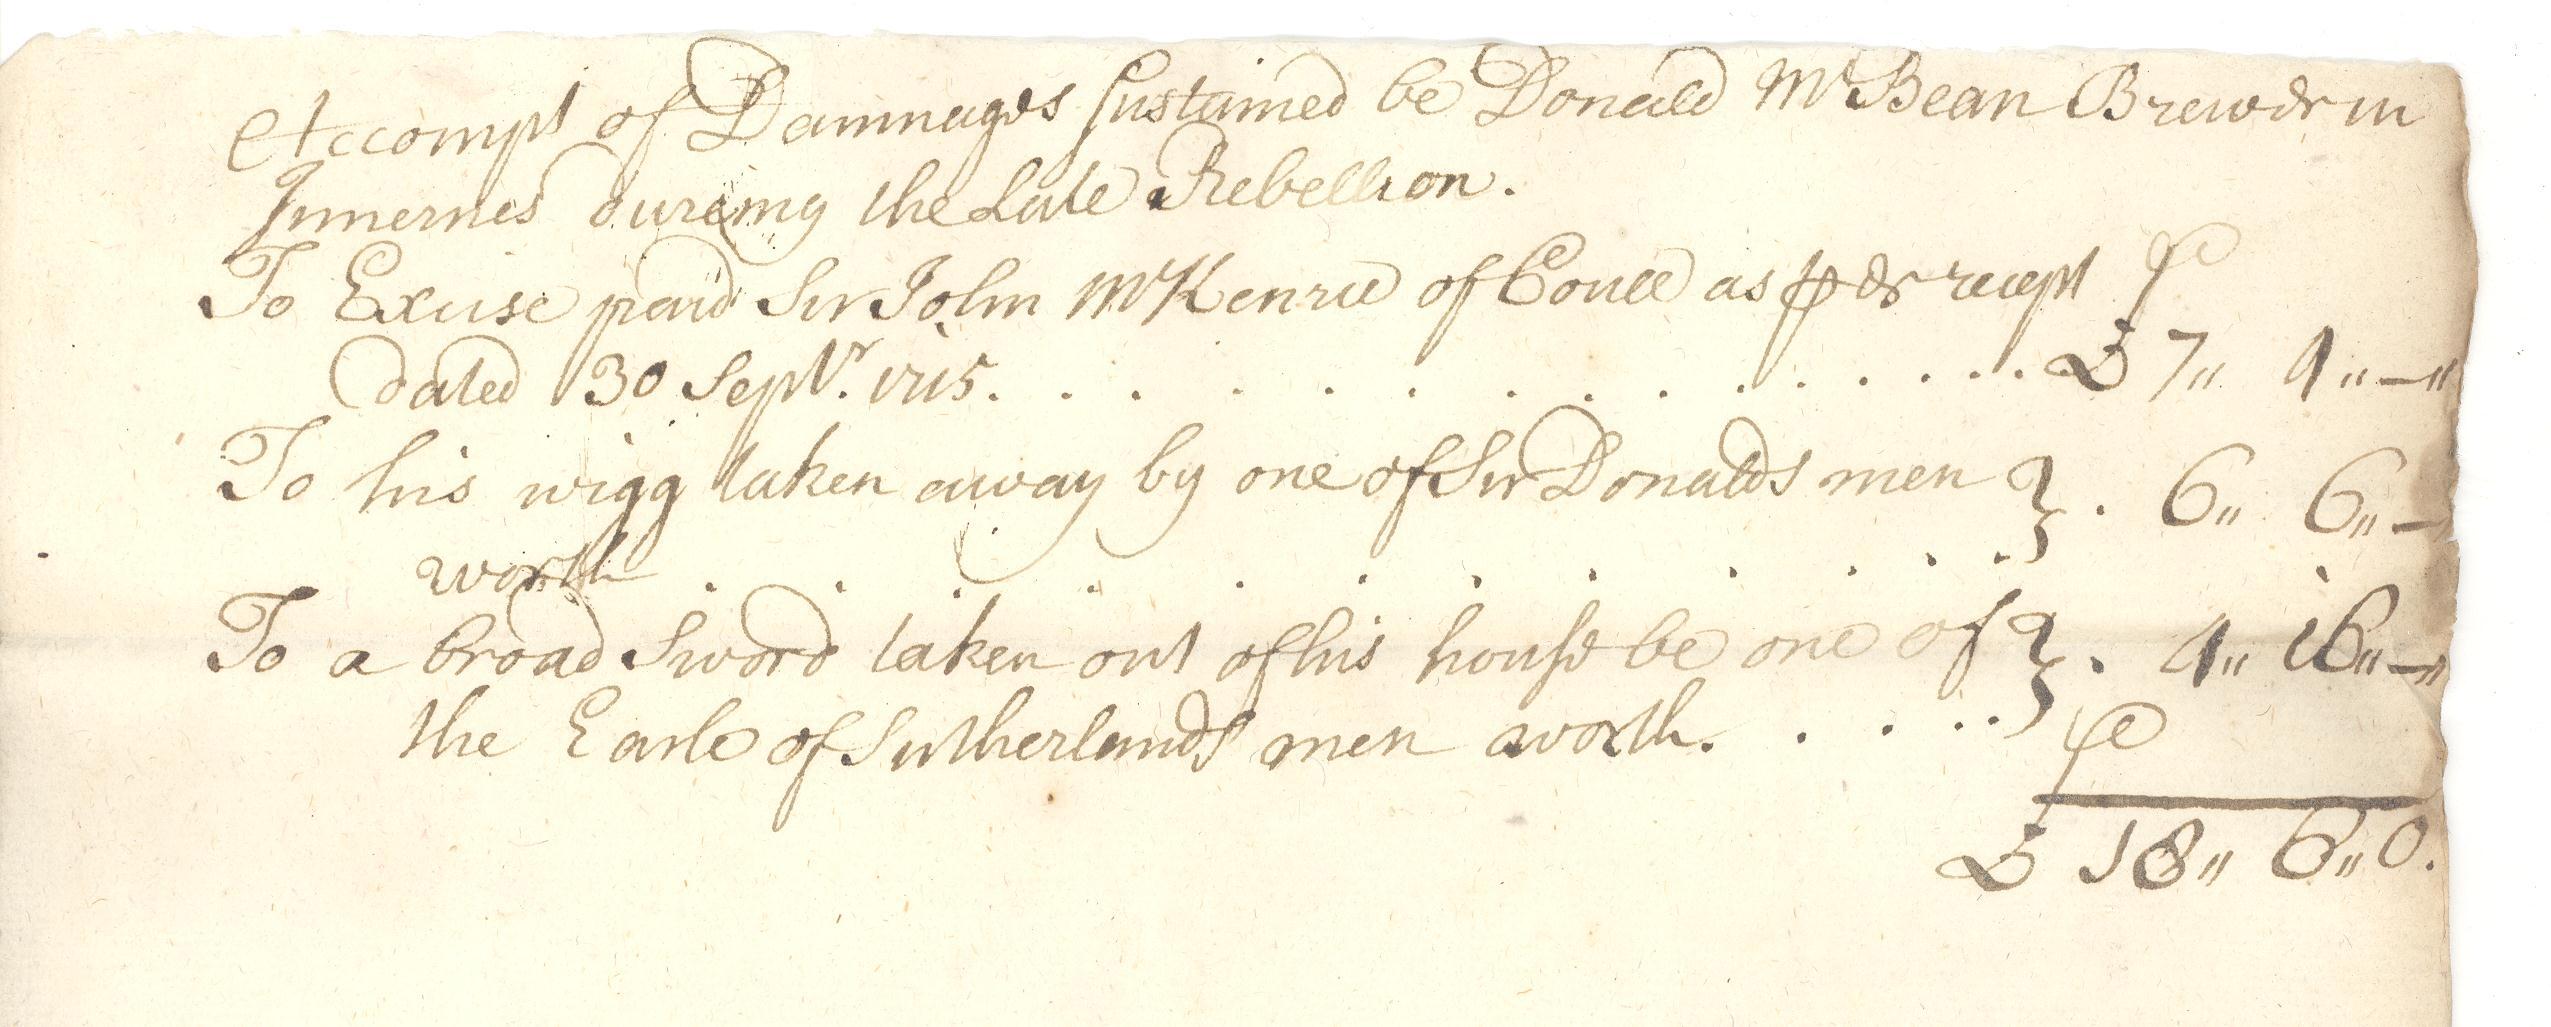 Accompt of Damnages sustained be Donald McBean Brewer in
Innernes dureing the Late Rebellion.
To Excise paid Sir John McKenzie of Coull as per recept
dated 30 Septr. 1715. . . . . . . . . . . . . . . . £ 7" 4" —"
To his wigg taken away by one of Sir Donalds men } . 6" 6" —
worth . . . . . . . . . . . .
To a broad Sword taken out of his house be one of } . 4" 16" —"
the Earle of Sutherlands men worth. . . . .
£ 18" 6" 0.